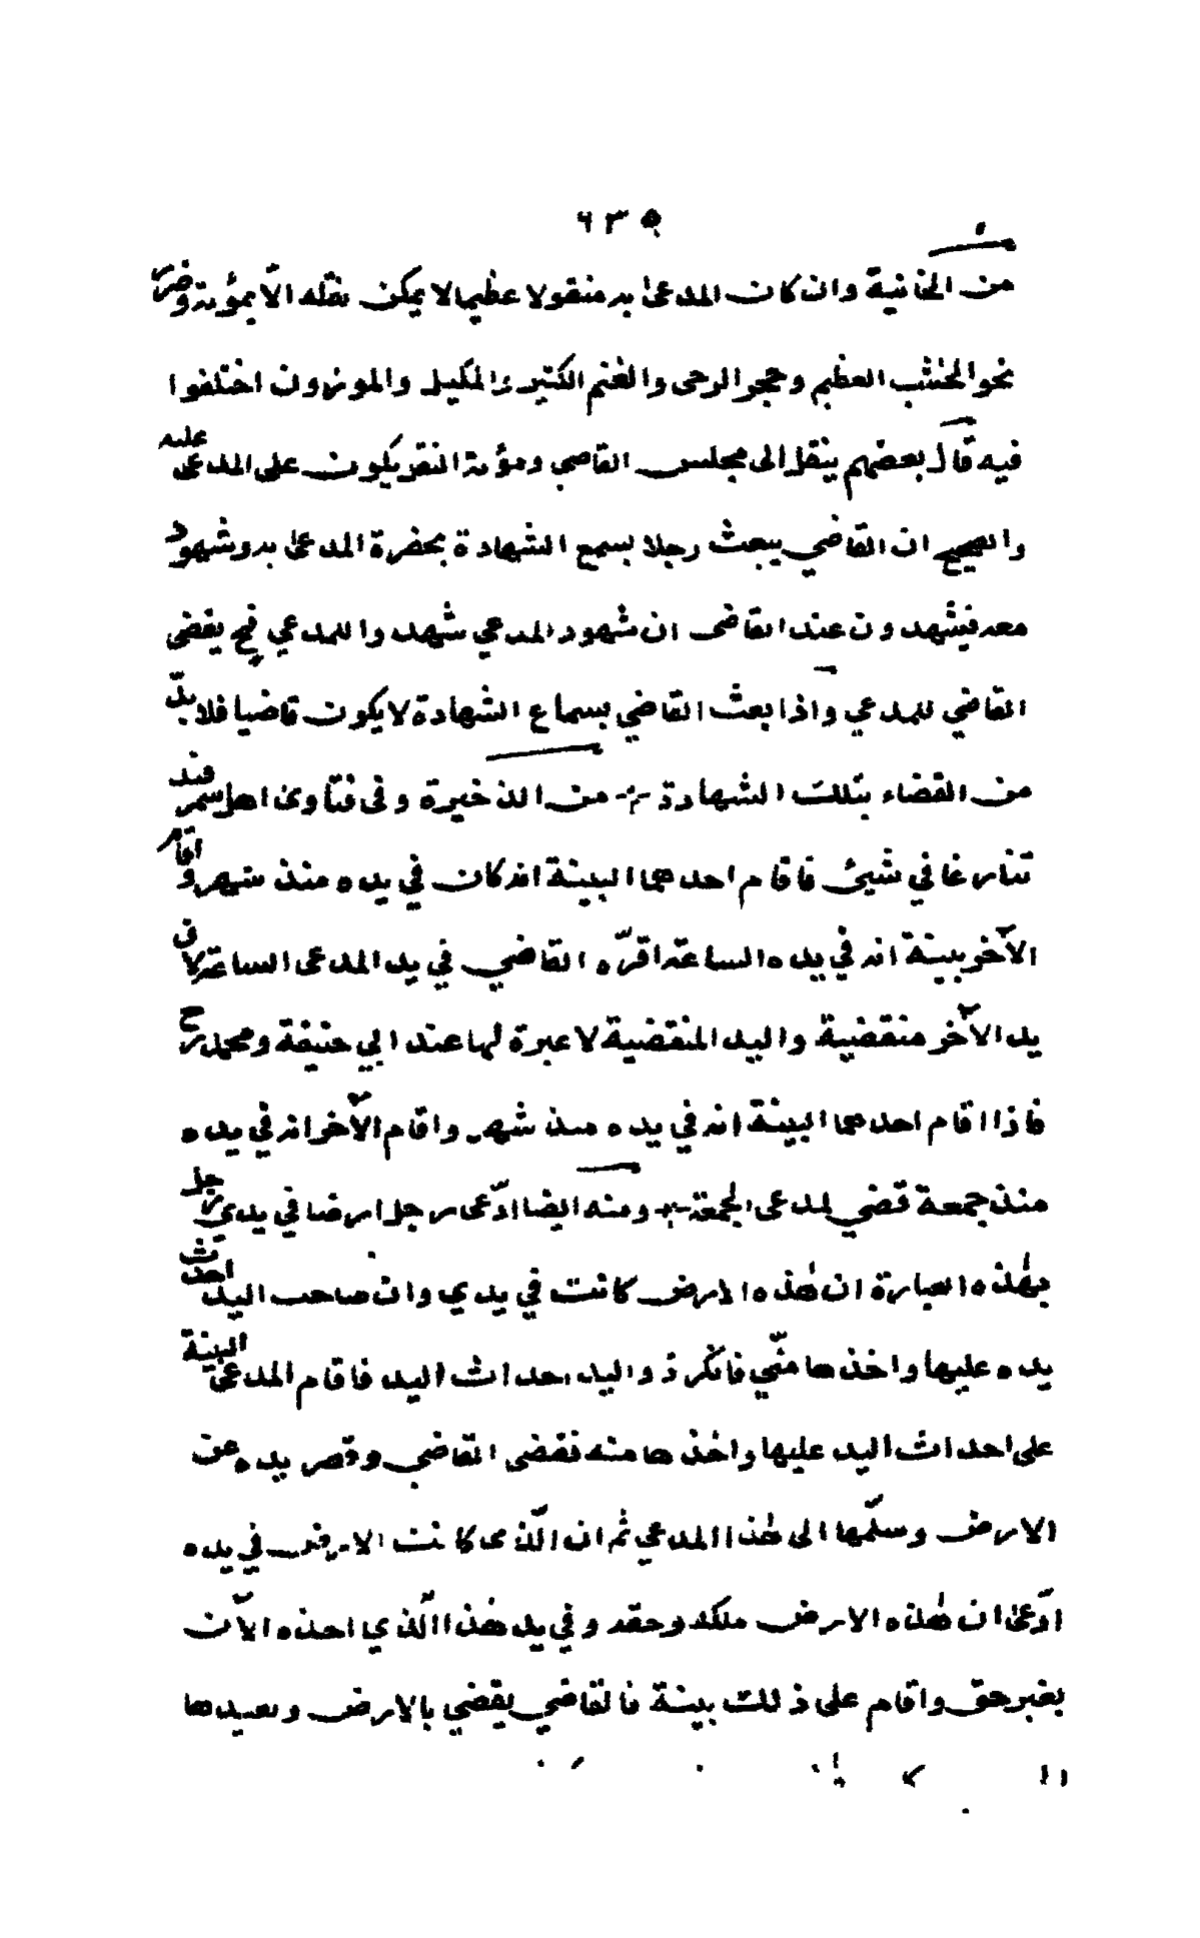 ٦٣٥
من الخانية وان كان المدعى به منقولا عظيما لا يمكن نقله الا بمؤنة وضرر
نحو الخشب العظيم وحجر الرحى والغنم الكثير والمكيل والموزون اختلفوا
فيه قال بعضهم ينقل الى مجلس القاضي ومؤنة النقل يكون على المدعى عليه
والصحيح ان القاضي يبعث رجلا يسمع الشهادة بحضرة المدعى به وشهود
معه فيشهدون عند القاضى ان شهود المدعي شهدوا للمدعي فح يقضى
القاضي للمدعي واذا بعث القاضي بسماع الشهادة لا يكون قاضيا فلا بدّ
من القضاء بتلك الشهادة من الذخيرة وفى فتاوى اهل سمرقند
تنازعا في شيئ فاقام احدهما البينة انه كان في يده منذ شهر واقام
الآخر بينة انه في يده الساعة اقرّه القاضي في يد المدعى الساعة لان
يد الآخر منقضية واليد المنقضية لا عبرة لها عند ابي حنيفة ومحمد رح
فاذا اقام احدهما البينة انه في يده منذ شهر واقام الآخر انه في يده
منذ جمعة قضي لمدعى الجمعة ومنه ايضا ادّعى رجل ارضا في يدي رجل
بهذه العبارة ان هذه الارض كانت في يدي وان صاحب اليد احدث
يده عليها واخذها منّي فانكر ذو اليد احداث اليد فاقام المدعى البينة
على احداث اليد عليها واخذها منه فقضى القاضي وقصر يده عن
الارض وسلّمها الى هذا المدعي ثم ان الّذى كانت الارض في يده
ادّعى ان هذه الارض ملكه وحقه وفي يد هذا الّذي اخذه الآن
بغير حق واقام على ذلك بينة فالقاضي يقضي بالارض ويعيدها